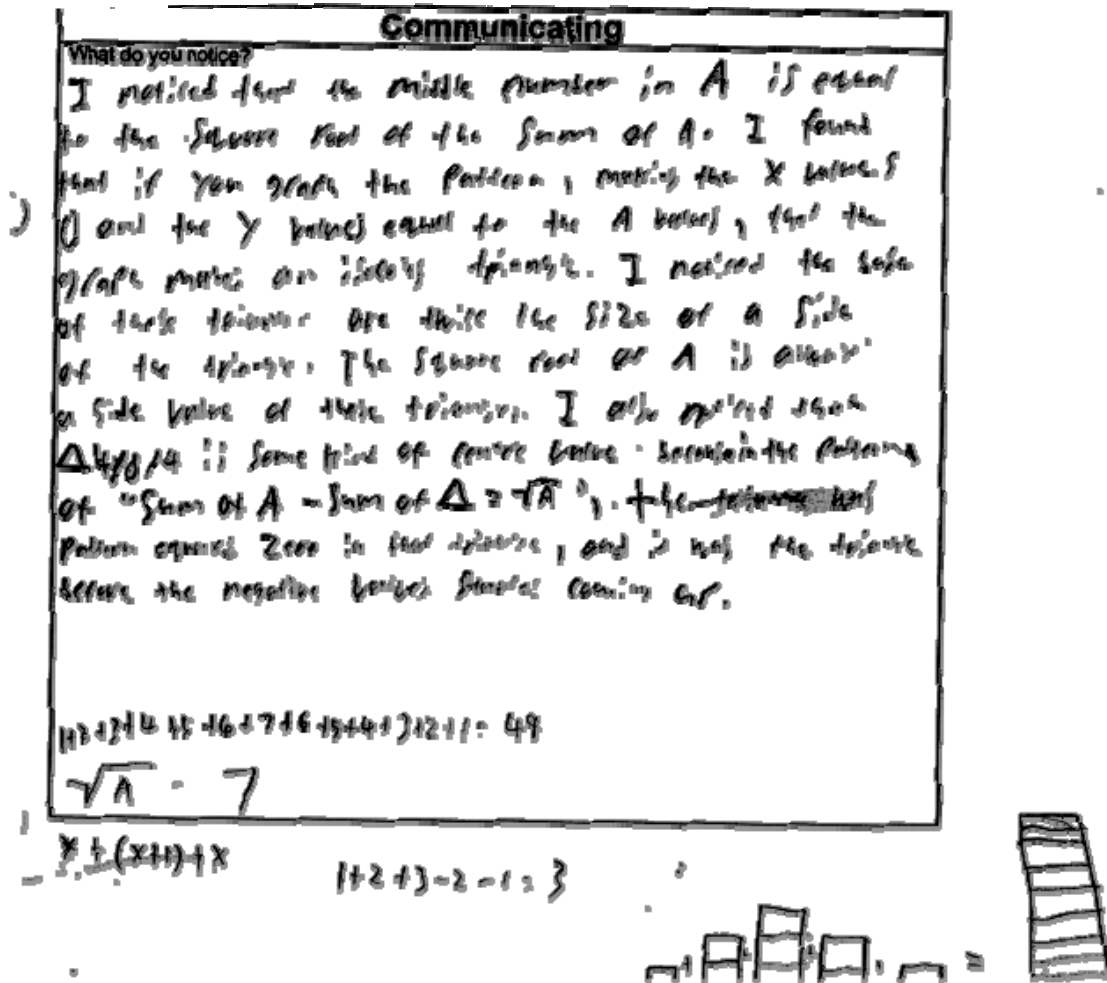 Communicating
What do you notice?
I noticed that the middle number in A is equal
to the square root of the sum of A. I found
that if you graph the pattern, making the X values
and the Y values equal to the A values, that the
graph makes an triangle. I noticed the
of these are twice the size of a side
of the triangle. The square root of A is always
a side value of these triangles. I also noticed that
Δ4 is some kind of centre value in the pattern
of "Sum of A - Sum of Δ = √A", the
pattern equals zero in that triangle, and it was the triangle
before the negative values started coming up.
1+2+3+4+5+6+7+6+5+4+3+2+1= 49
√A = 7
x + (x+1) + x
1+2+3-2-1=3